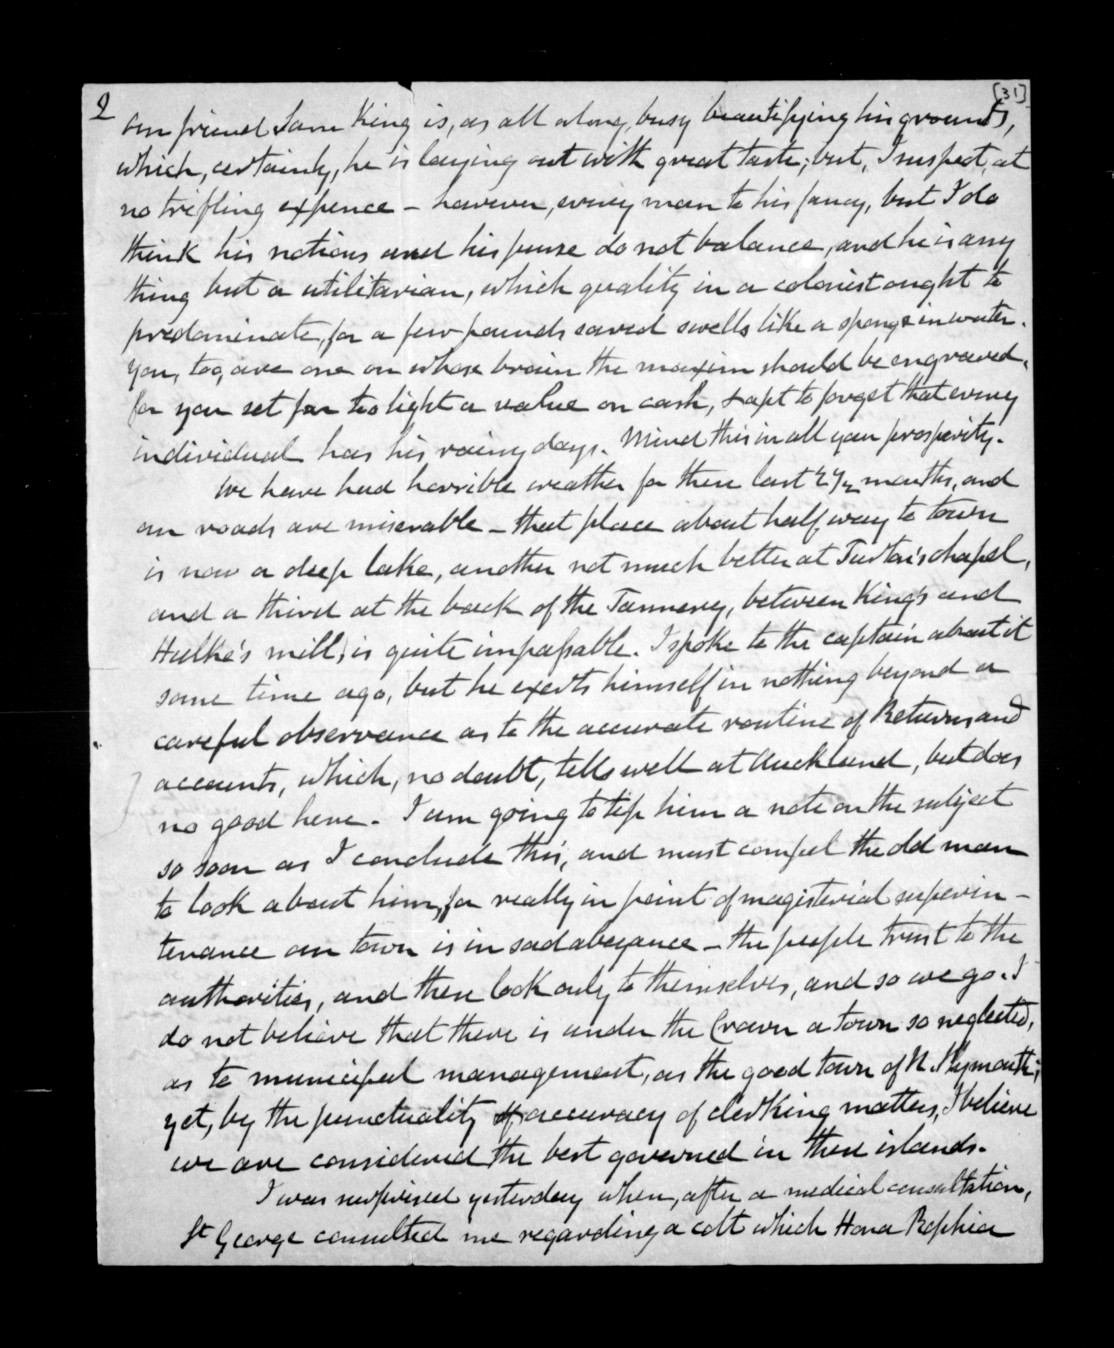 2
[31]
our friend Sam King is, as all along, busy beautifying his grounds,
which, certainly, he is laying out with great taste; but, I suspect, at
no trifling expence – however, every man to his fancy, but I do
think his notions and his purse do not balance, and he is any
thing but a utilitarian, which quality in a colonist ought to
predominate, for a few pounds saved swells like a sponge in water.
You, too, are one on whose brain the maxim should be engraved,
for you set far too light a value on cash, & apt to forget that every
individual has his rainy days. Mind this in all your prosperity.
We have had horrible weather for these last 2 1/2 months, and
our roads are miserable – that place about half way to town
is now a deep lake, another not much better at chapel,
and a third at the back of the Tannery, between King's and
Hulke's mill, is quite impassable. I spoke to the captain about it
some time ago, but he exerts himself in nothing beyond a
careful observance as to the accurate routine of Returns and
accounts, which, no doubt, tells well at Auckland, but does
no good here. I am going to tip him a note on the subject
so soon as I conclude this, and must compel the old man
to look about him, for really in point of magisterial superin-
tenance our town is in sad abeyance – the people trust to the
authorities, and these look only to themselves, and so we go. I
do not believe that there is under the Crown a town so neglected,
as to municipal management, as the good town of N. Plymouth;
yet, by the punctuality & accuracy of clerking matters, I believe
we are considered the best governed in these islands.
I was surprised yesterday when, after a medical consultation,
St George consulted me regarding a colt which Hona Rophia